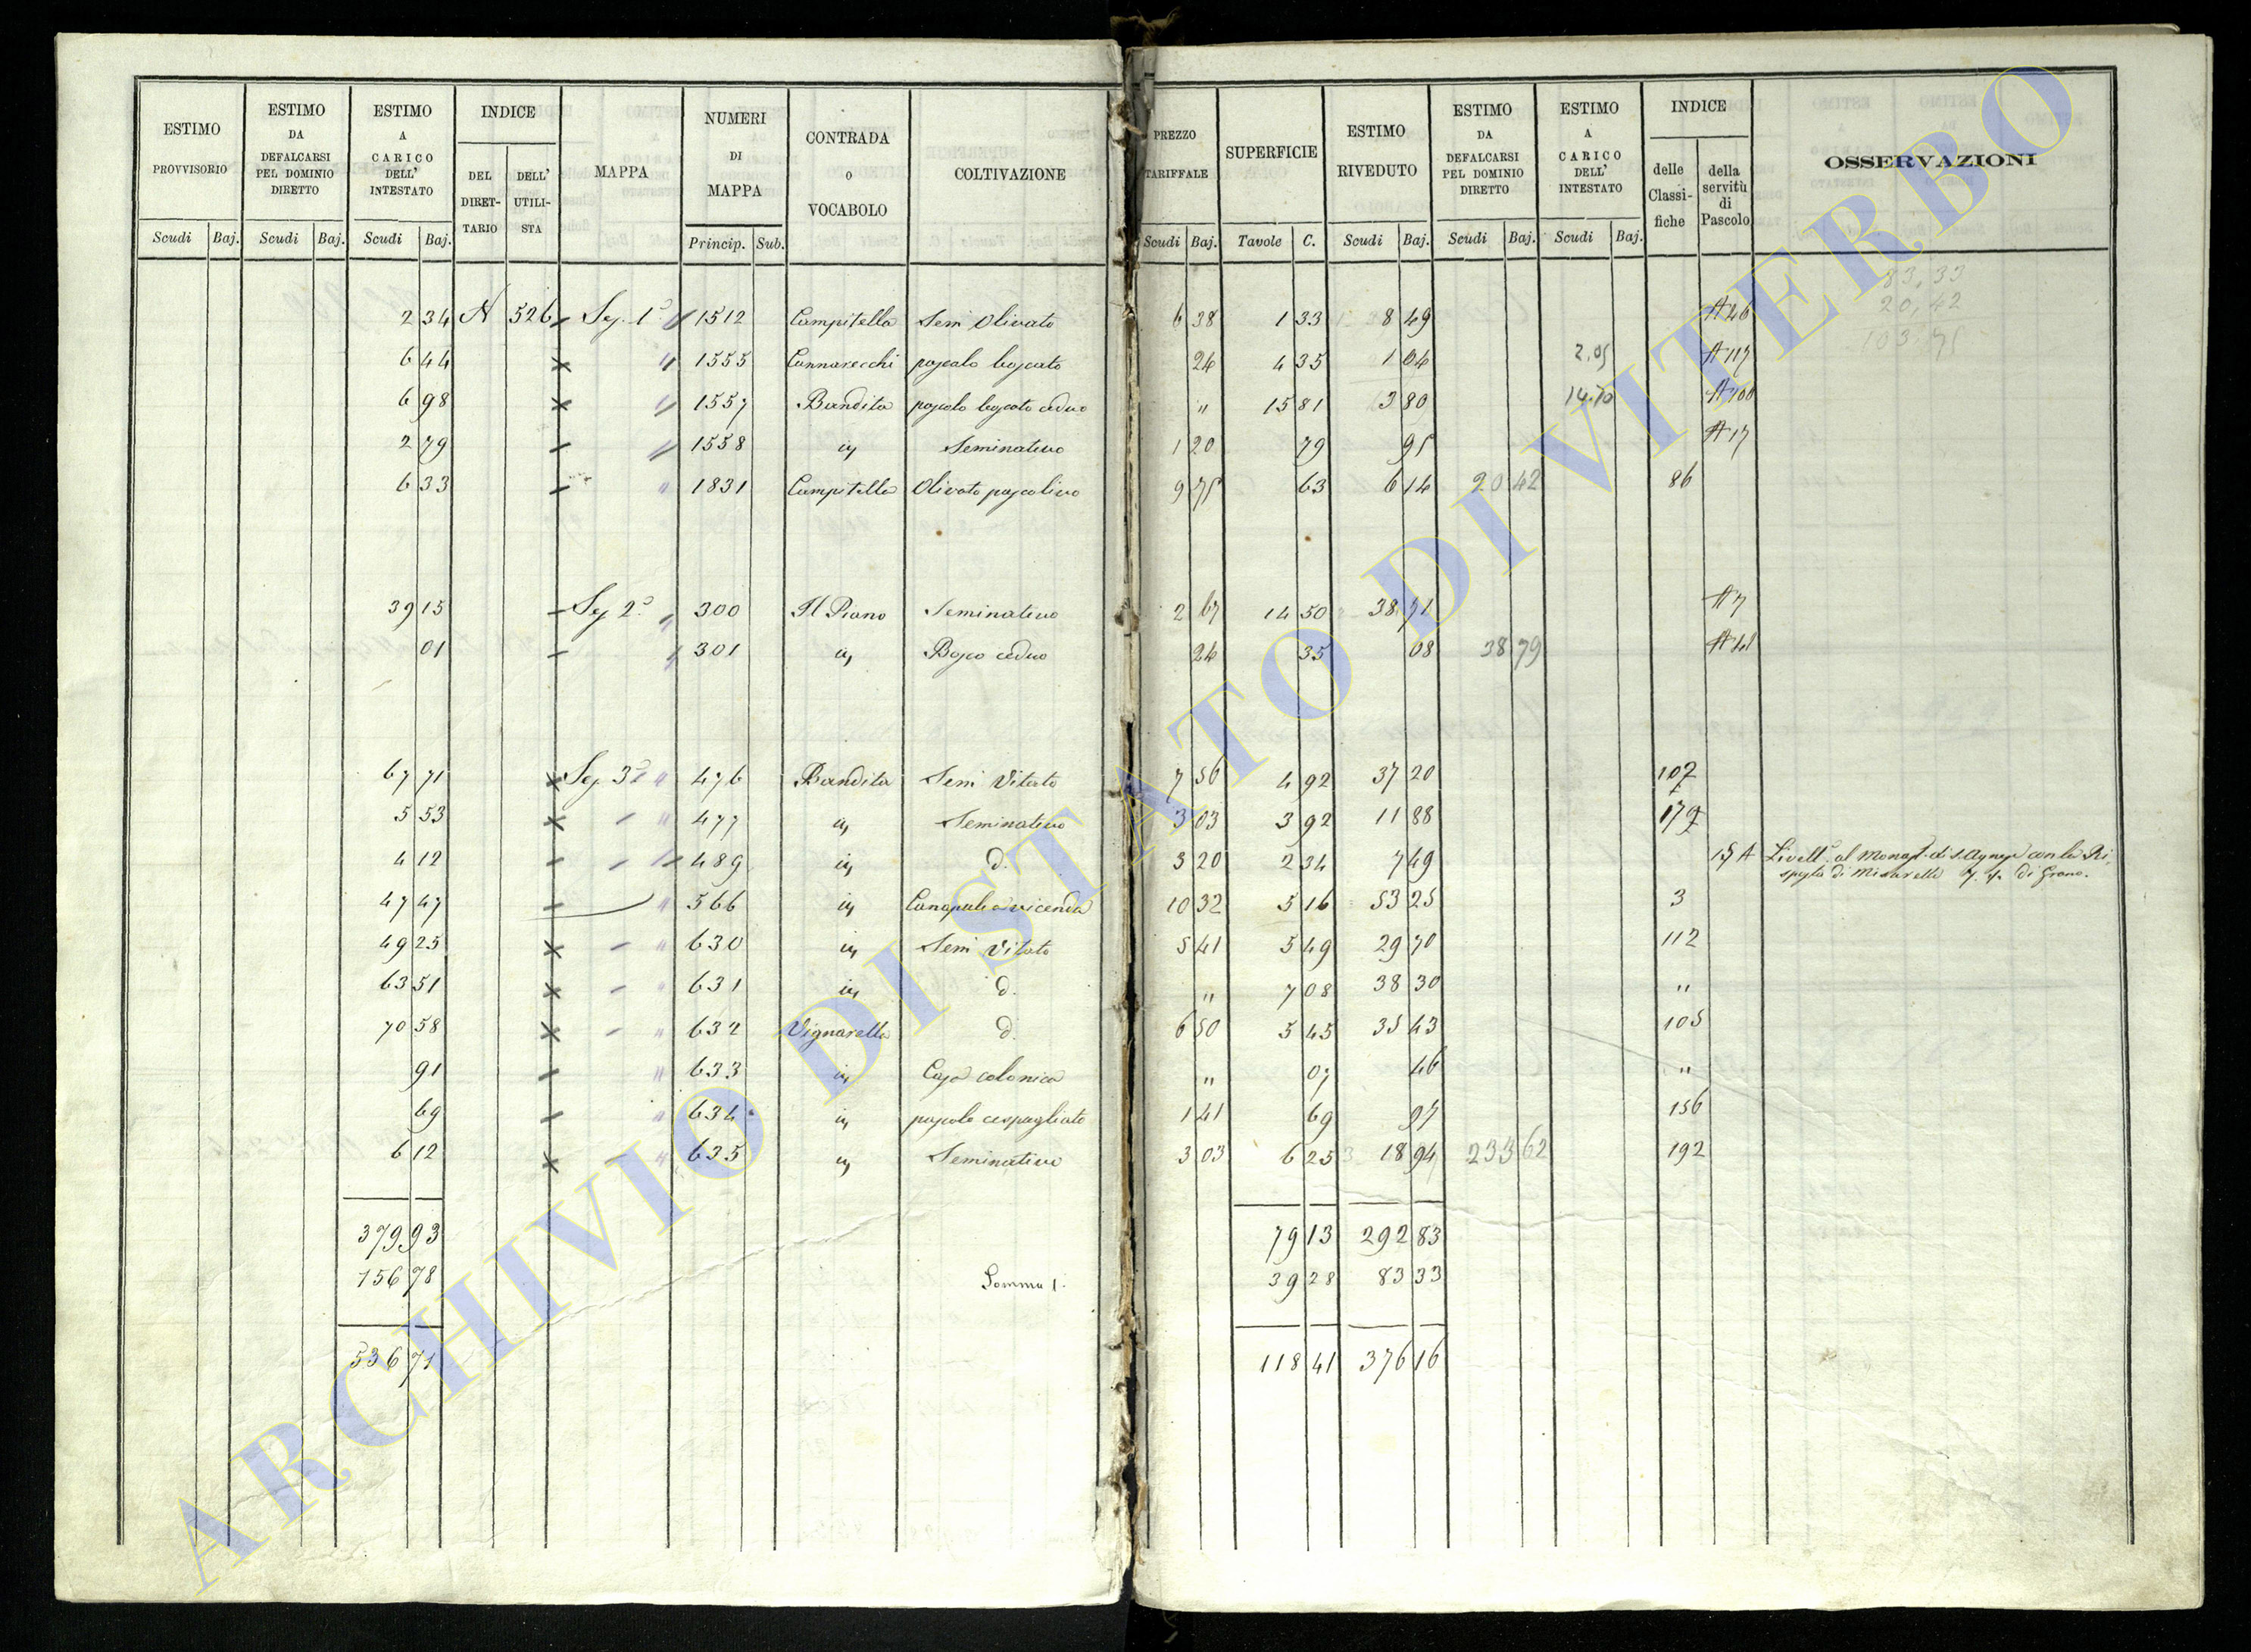 ESTIMO PROVVISORIO | ESTIMO DA DEFALCARSI PEL DOMINIO DIRETTO | ESTIMO A CARICO DELL' INTESTATO | INDICE | MAPPA | NUMERI DI MAPPA | CONTRADA O VOCABOLO | COLTIVAZIONE | PREZZO TARIFFALE | SUPERFICIE | ESTIMO RIVEDUTO | ESTIMO DA DEFALCARSI PEL DOMINIO DIRETTO | ESTIMO A CARICO DELL' INTESTATO | INDICE | OSSERVAZIONI
DEL DIRETTARIO | DELL' UTILISTA | delle Classifiche | della servitù di Pascolo
Scudi | Baj. | Scudi | Baj. | Scudi | Baj. | Princip. | Sub. | Scudi | Baj. | Tavole | C. | Scudi | Baj. | Scudi | Baj. | Scudi | Baj.
83,33
20,42
103,75
2 34 | A | 526 | Sez. 1a | 1512 | Campitella | Semi Olivato | 6 38 | 1 33 | 8 49 | A 46
6 44 | " | 1555 | Cannarecchi | pascolo boscato | 24 | 4 35 | 1 04 | 2.05 | A 117
6 98 | " | 1557 | Bandita | pascolo boscato ceduo | " | 15 81 | 3 80 | 14.70 | A 100
2 79 | " | 1558 | id | Seminativo | 1 20 | 79 | 95 | A 17
6 33 | " | 1831 | Campitella | Olivato pascolivo | 9 75 | 63 | 6 14 | 20 42 | 86
39 15 | Sez 2a | " | 300 | Il Piano | Seminativo | 2 67 | 14 50 | 38 71 | A 7
01 | " | 301 | id | Bosco ceduo | 24 | 35 | 08 | 38 79
67 71 | Sez. 3a | " | 476 | Bandita | Semi Vitato | 7 56 | 4 92 | 37 20 | 107
5 53 | " | 477 | id | Seminativo | 3 03 | 3 92 | 11 88 | 179
4 12 | " | 489 | id | d. | 3 20 | 2 34 | 7 49 | 15 A | Livello al Monast. di S. Agnese con la Ri-
sposta di Misurelle 7. di Grano.
47 47 | " | 566 | id | Canapule a vicenda | 10 32 | 5 16 | 53 25 | 3
49 25 | " | 630 | id | Semi Vitato | 5 41 | 5 49 | 29 70 | 112
63 51 | " | 631 | id | d. | " | 7 08 | 38 30 | "
70 58 | " | 632 | Vignarella | d. | 6 50 | 5 45 | 35 43 | 105
91 | " | 633 | id | Casa colonica | " | 07 | 46 | "
69 | " | 634 | id | pascolo cespugliato | 1 41 | 69 | 97 | 156
6 12 | " | 635 | id | Seminativo | 3 03 | 6 25 | 18 94 | 233 62 | 192
379 93 | 79 13 | 292 83
156 78 | Somma 1. | 39 28 | 83 33
536 71 | 118 41 | 376 16
ARCHIVIO DI STATO DI VITERBO